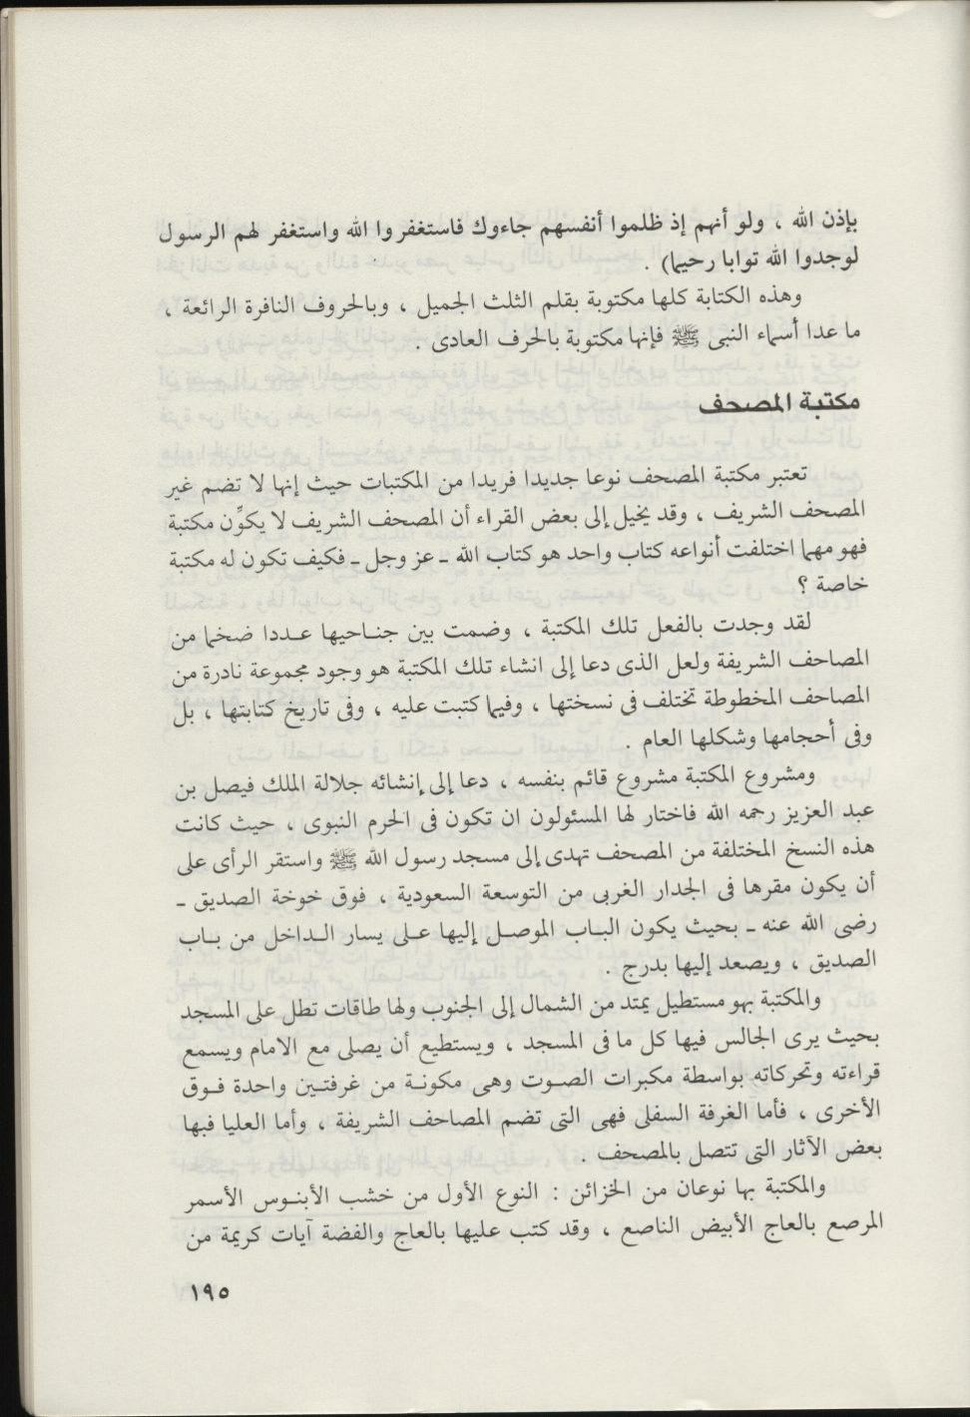 بإذن الله ، ولو أنهم إذ ظلموا أنفسهم جاءوك فاستغفروا الله واستغفر لهم الرسول
لوجدوا الله توابا رحيما) .
وهذه الكتابة كلها مكتوبة بقلم الثلث الجميل ، وبالحروف النافرة الرائعة ،
ما عدا أسماء النبى ﷺ فإنها مكتوبة بالحرف العادى .
مكتبة المصحف
تعتبر مكتبة المصحف نوعا جديدا فريدا من المكتبات حيث إنها لا تضم غير
المصحف الشريف ، وقد يخيل إلى بعض القراء أن المصحف الشريف لا يكوِّن مكتبة
فهو مهما اختلفت أنواعه كتاب واحد هو كتاب الله ـ عز وجل ـ فكيف تكون له مكتبة
خاصة ؟
لقد وجدت بالفعل تلك المكتبة ، وضمت بين جنـاحيها عـددا ضخما من
المصاحف الشريفة ولعل الذى دعا إلى انشاء تلك المكتبة هو وجود مجموعة نادرة من
المصاحف المخطوطة تختلف فى نسختها ، وفيما كتبت عليه ، وفى تاريخ كتابتها ، بل
وفى أحجامها وشكلها العام .
ومشروع المكتبة مشروع قائم بنفسه ، دعا إلى إنشائه جلالة الملك فيصل بن
عبد العزيز رحمه الله فاختار لها المسئولون ان تكون فى الحرم النبوى ، حيث كانت
هذه النسخ المختلفة من المصحف تهدى إلى مسجد رسول الله ﷺ واستقر الرأى على
أن يكون مقرها فى الجدار الغربى من التوسعة السعودية ، فوق خوخة الصديق ـ
رضى الله عنه ـ بحيث يكون البـاب الموصـل إليها عـلى يسار الـداخل من بـاب
الصديق ، ويصعد إليها بدرج .
والمكتبة بهو مستطيل يمتد من الشمال إلى الجنوب ولها طاقات تطل على المسجد
بحيث يرى الجالس فيها كل ما فى المسجد ، ويستطيع أن يصلى مع الامام ويسمع
قراءته وتحركاته بواسطة مكبرات الصـوت وهى مكونـة من غرفتـين واحدة فـوق
الأخرى ، فأما الغرفة السفلى فهى التى تضم المصاحف الشريفة ، وأما العليا فبها
بعض الآثار التى تتصل بالمصحف .
والمكتبة بها نوعان من الخزائن : النوع الأول من خشب الأبنـوس الأسمر
المرصع بالعاج الأبيض الناصع ، وقد كتب عليها بالعاج والفضة آيات كريمة من
١٩٥